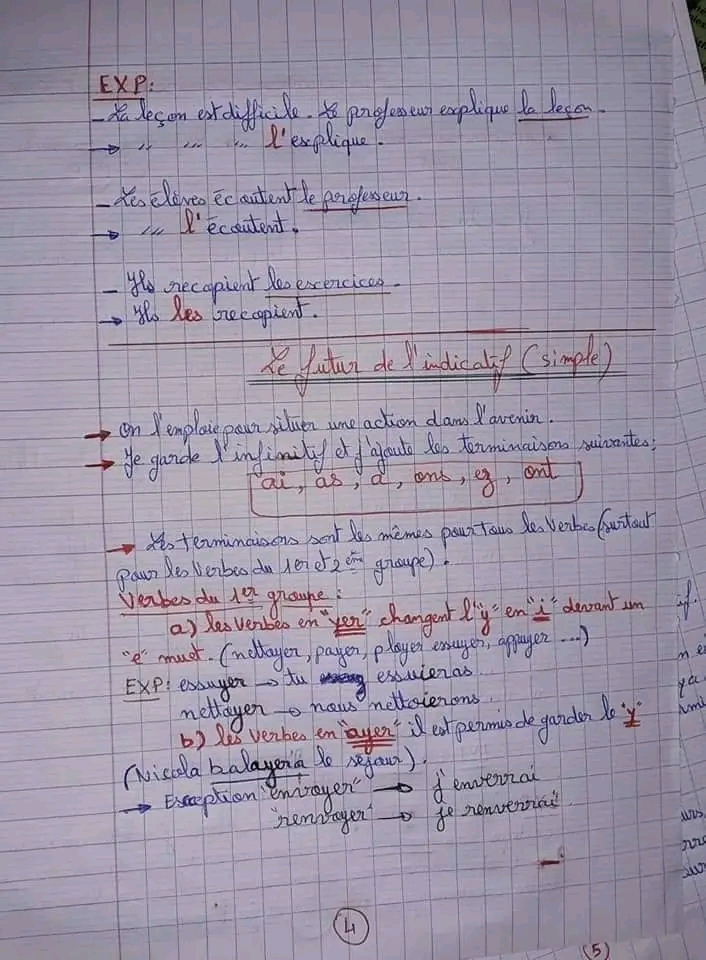 EXP:
- La leçon est difficile. Le professeur explique la leçon.
→ " " " l'explique.
- Les élèves écoutent le professeur.
→ " l'écoutent.
- Ils recopient les escercices.
→ Ils les recopient.
Le futur de l'indicatif (simple)
→ On l'emploie pour situer une action dans l'avenir.
→ Je garde l'infinitif et j'ajoute les terminaisons suivantes:
ai, as, a, ons, ez, ont
→ Les terminaisons sont les mêmes pour tous les verbes (surtout
pour les verbes du 1er et 2ème groupe).
Verbes du 1er groupe:
a) les verbes en "yer" changent l'"y" en "i" devant un
"e" muet. (nettayer, payer, ployer essuyer, appuyer ...)
EXP: essuyer → tu essuieras..
nettoyer → nous nettoierons.
b) les verbes en "ayer" il est permis de garder le "y"
(Nicola balayera le séjour).
→ Exception "envoyer" → j'enverrai
"renvoyer" → je renverrai
4
(5)